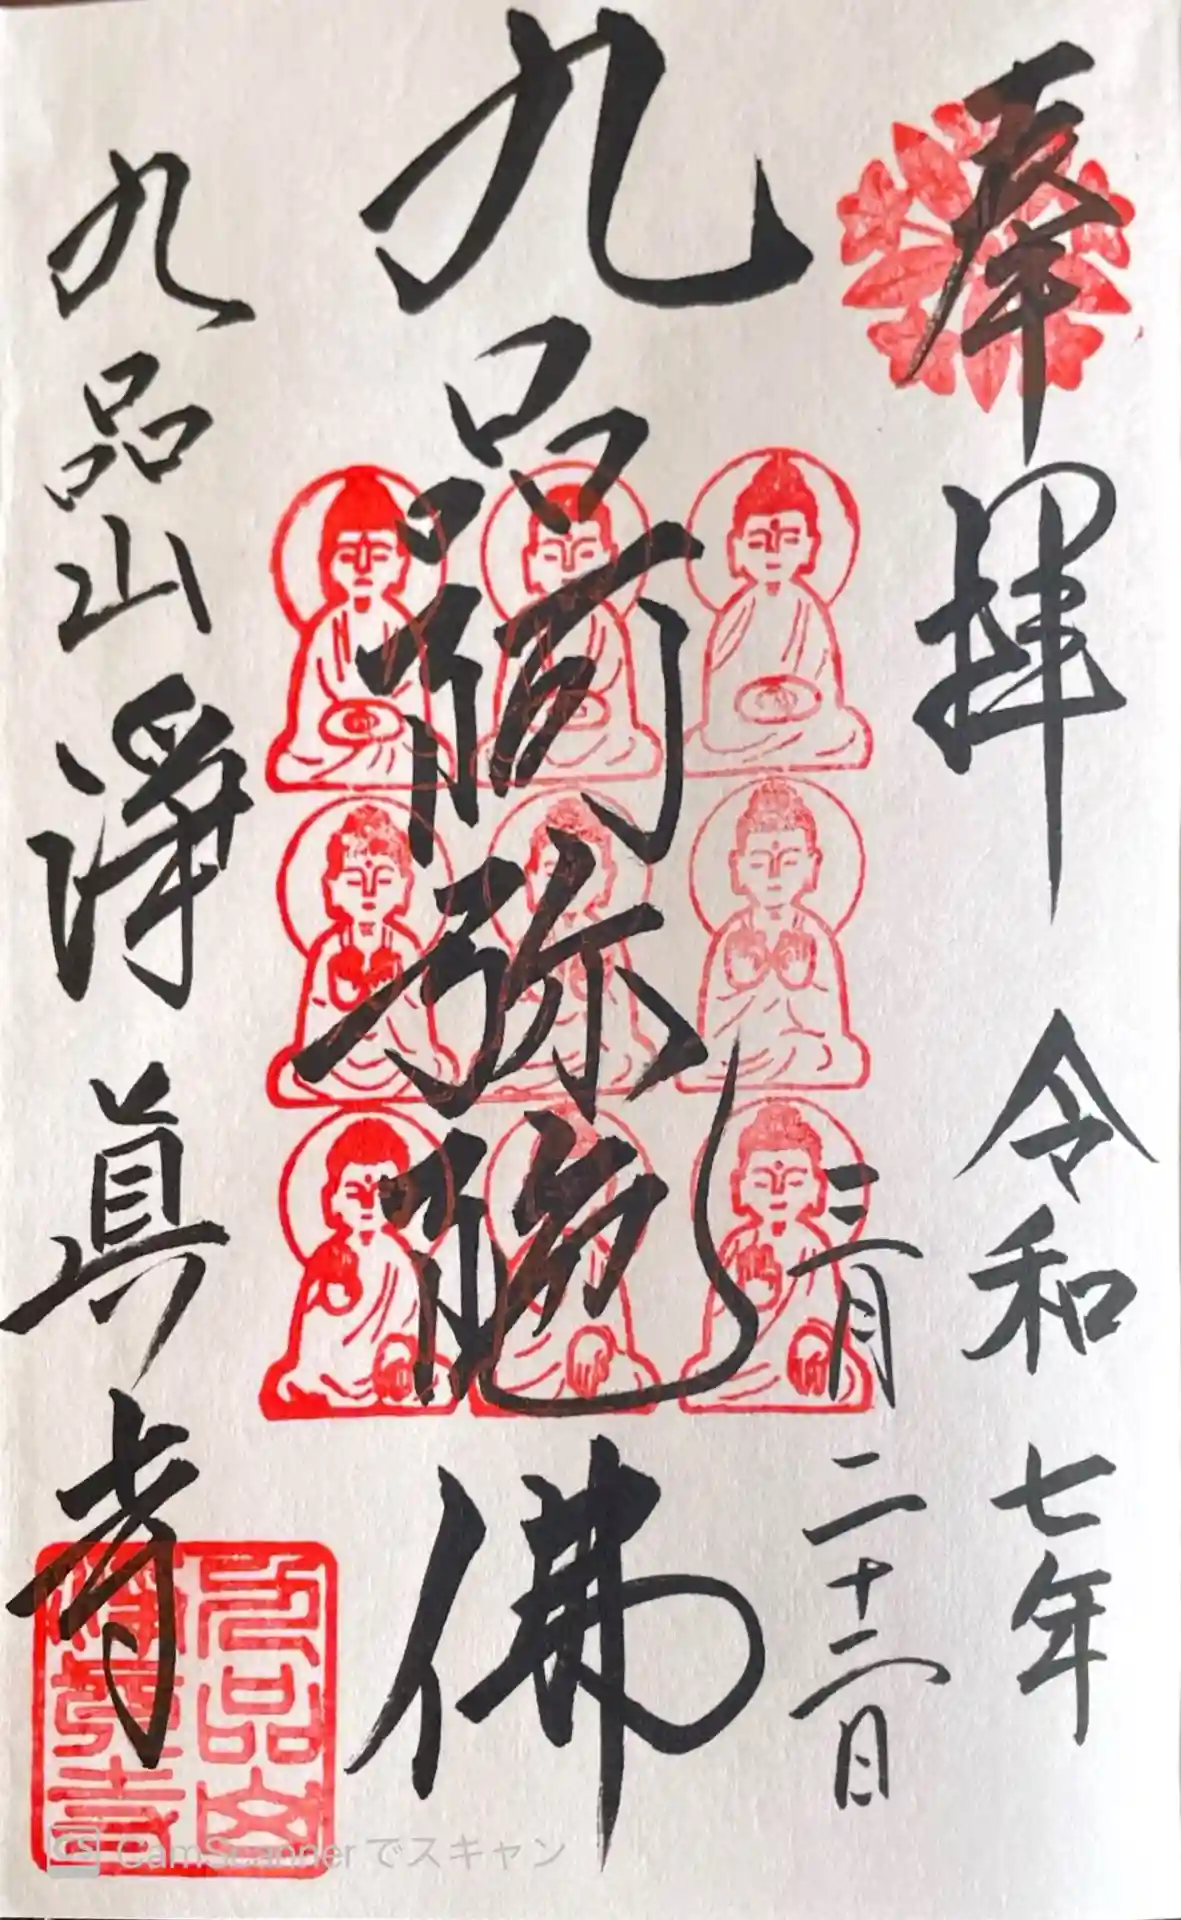 奉拝
令和七年
三月二十二日
九品阿弥陀佛
九品山淨眞寺
九品山
淨眞寺
CS CamScannerでスキャン